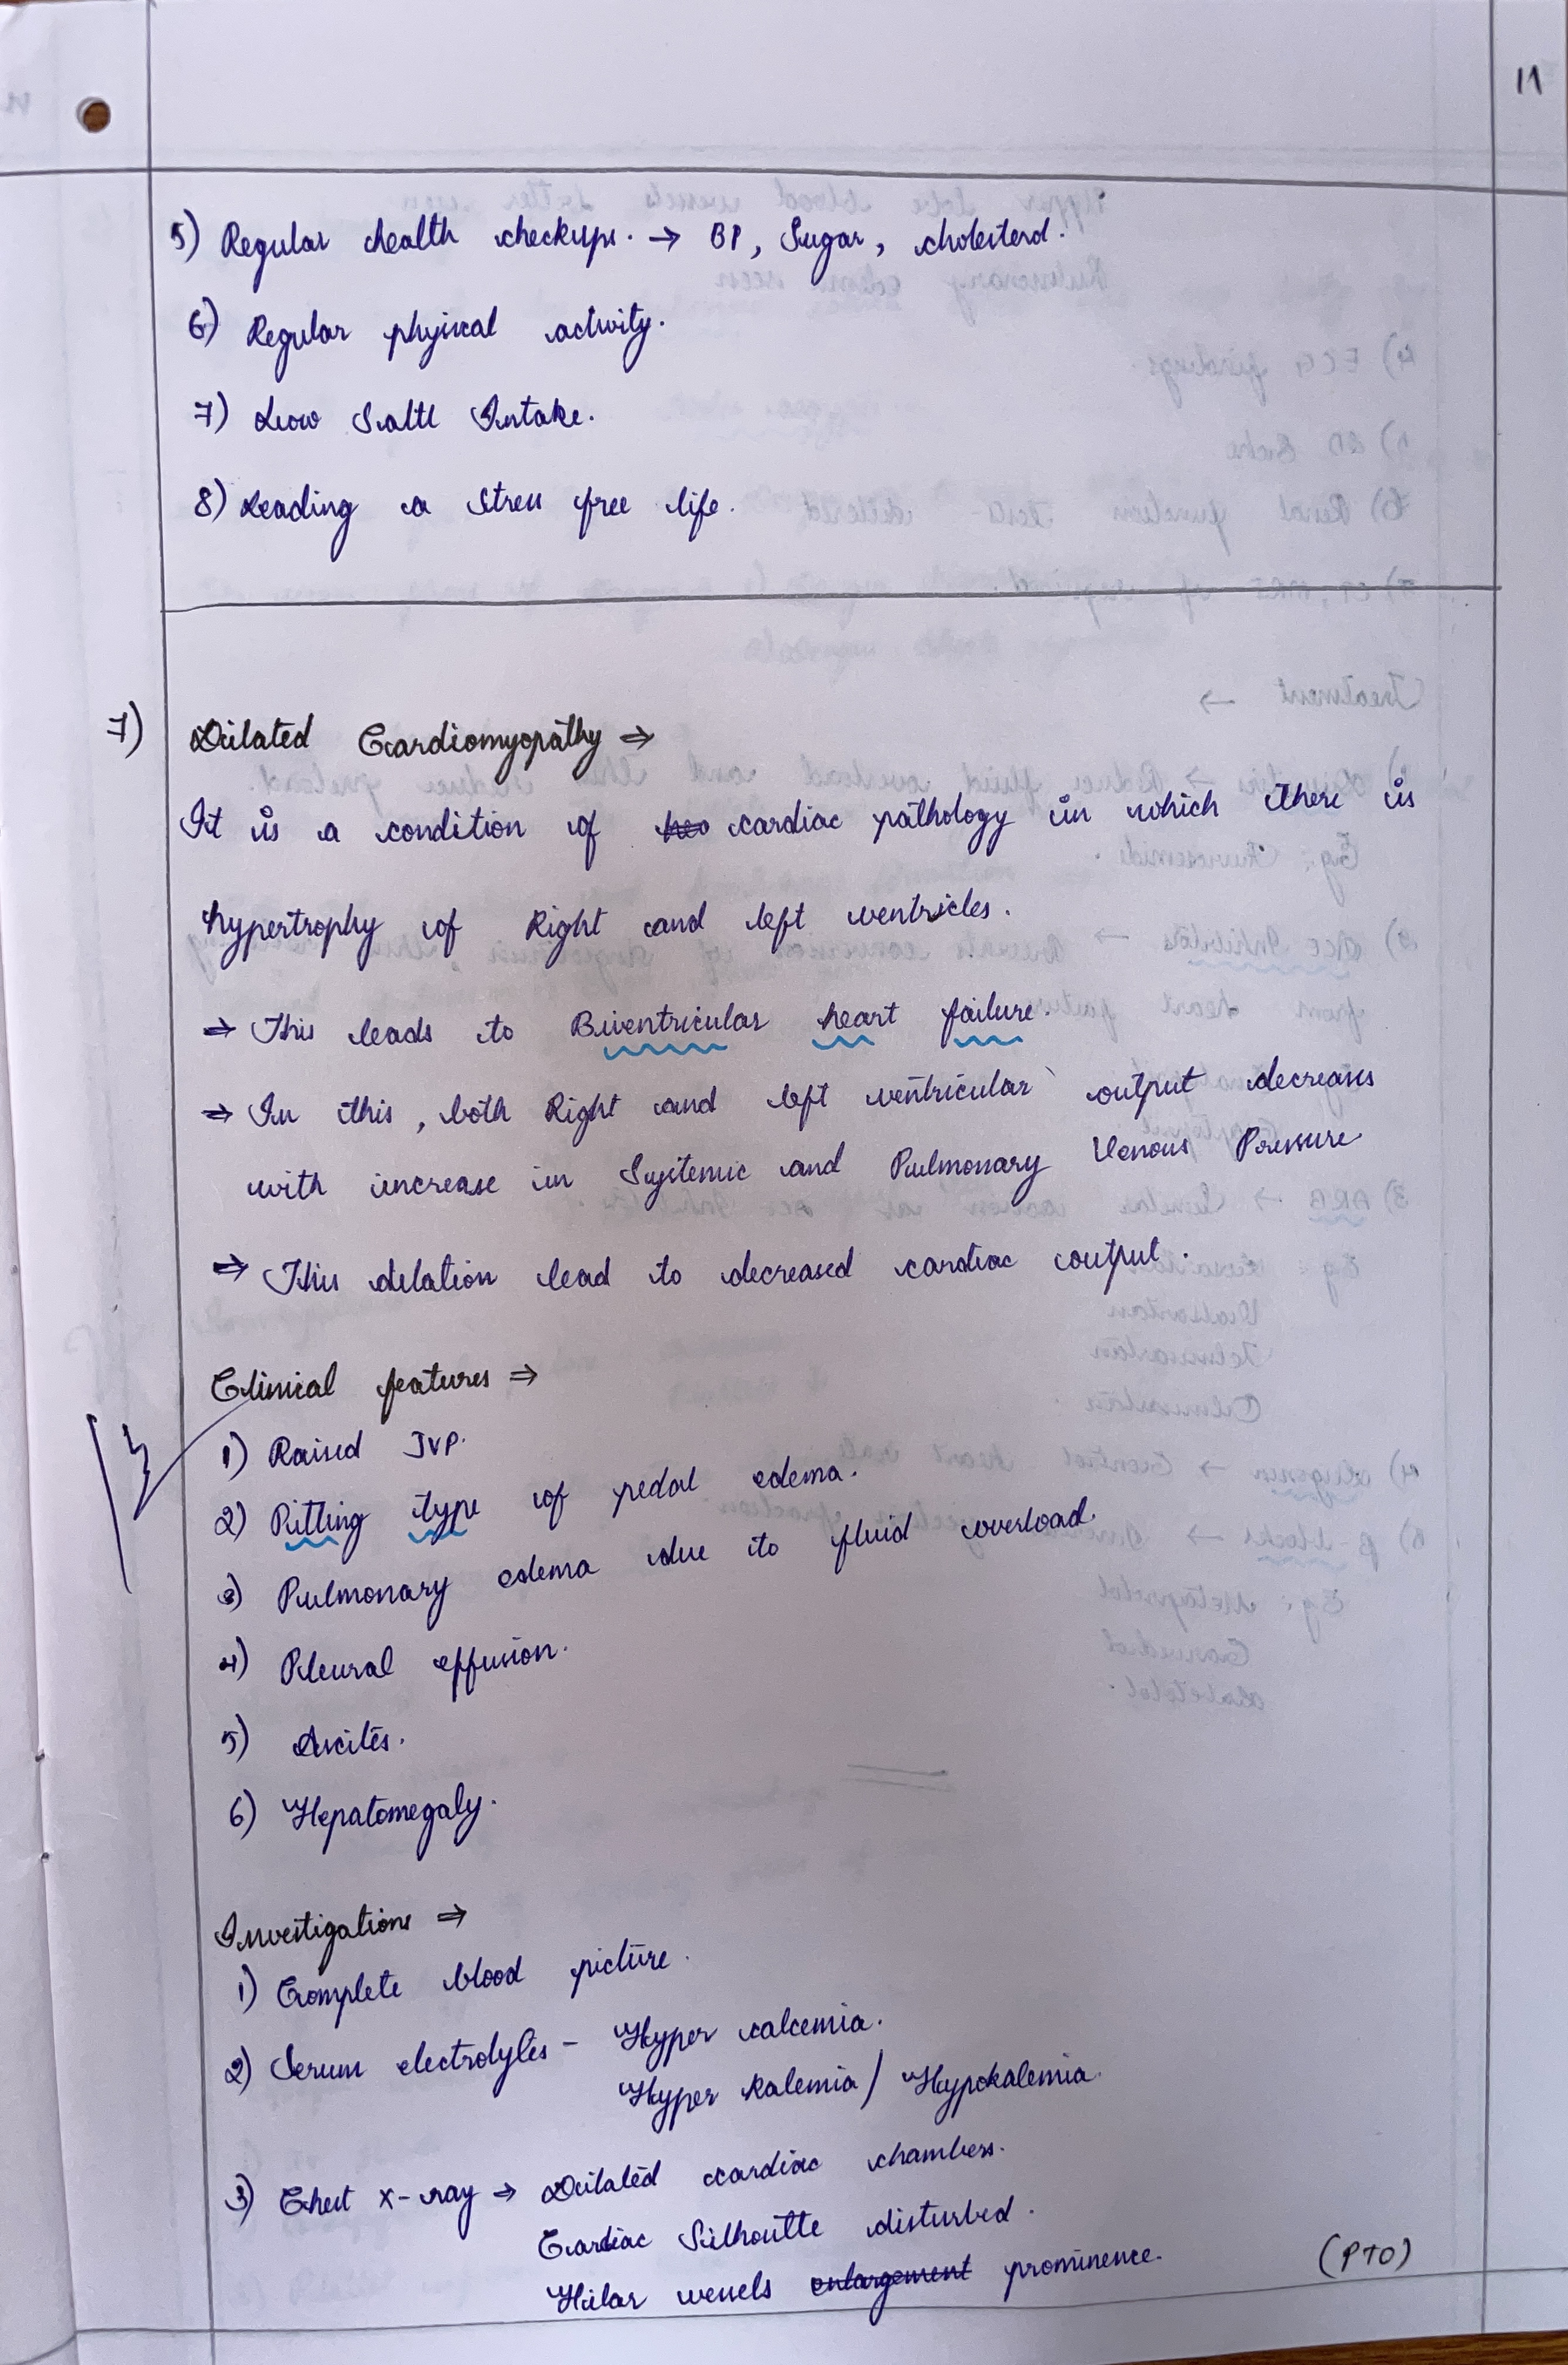 11
5) Regular health checkups. → BP, Sugar, cholesterol.
6) Regular physical activity.
7) Low Salt Intake.
8) Leading a stress free life.
7) Dilated Cardiomyopathy ⇒
It is a condition of cardiac pathology in which there is
hypertrophy of Right and left ventricles.
⇒ This leads to Biventricular heart failure.
⇒ In this, both Right and left ventricular output decreases
with increase in Systemic and Pulmonary Venous Pressure
⇒ This dilation lead to decreased cardiac output.
Clinical features ⇒
1) Raised JVP.
2) Pitting type of pedal edema.
3) Pulmonary edema due to fluid overload.
4) Pleural effusion.
5) Ascites.
6) Hepatomegaly.
Investigations ⇒
1) Complete blood picture.
2) Serum electrolytes - Hyper calcemia.
Hyper kalemia / Hypokalemia.
3) Chest x-ray → Dilated cardiac chambers.
Cardiac Silhoutte disturbed.
Hilar vessels enlargement prominence.
(PTO)